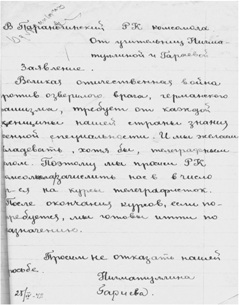 В Параньгинский РК комсомола
От учительниц Нигма-
туллиной и Гараевой
Заявление.
Великая отечественная война
против озверелого врага, германского
фашизма, требует от каждой
женщины нашей страны знания
военной специальности. И мы желаем
овладевать, хотя бы, телеграфным
делом. Поэтому мы просим РК
комсомола зачислить нас в число
курсы телеграфисток.
После окончания курсов, если по-
требуется, мы готовы итти по
назначению.
Просим не отказать нашей
просьбе.
Нигматуллина
Гараева